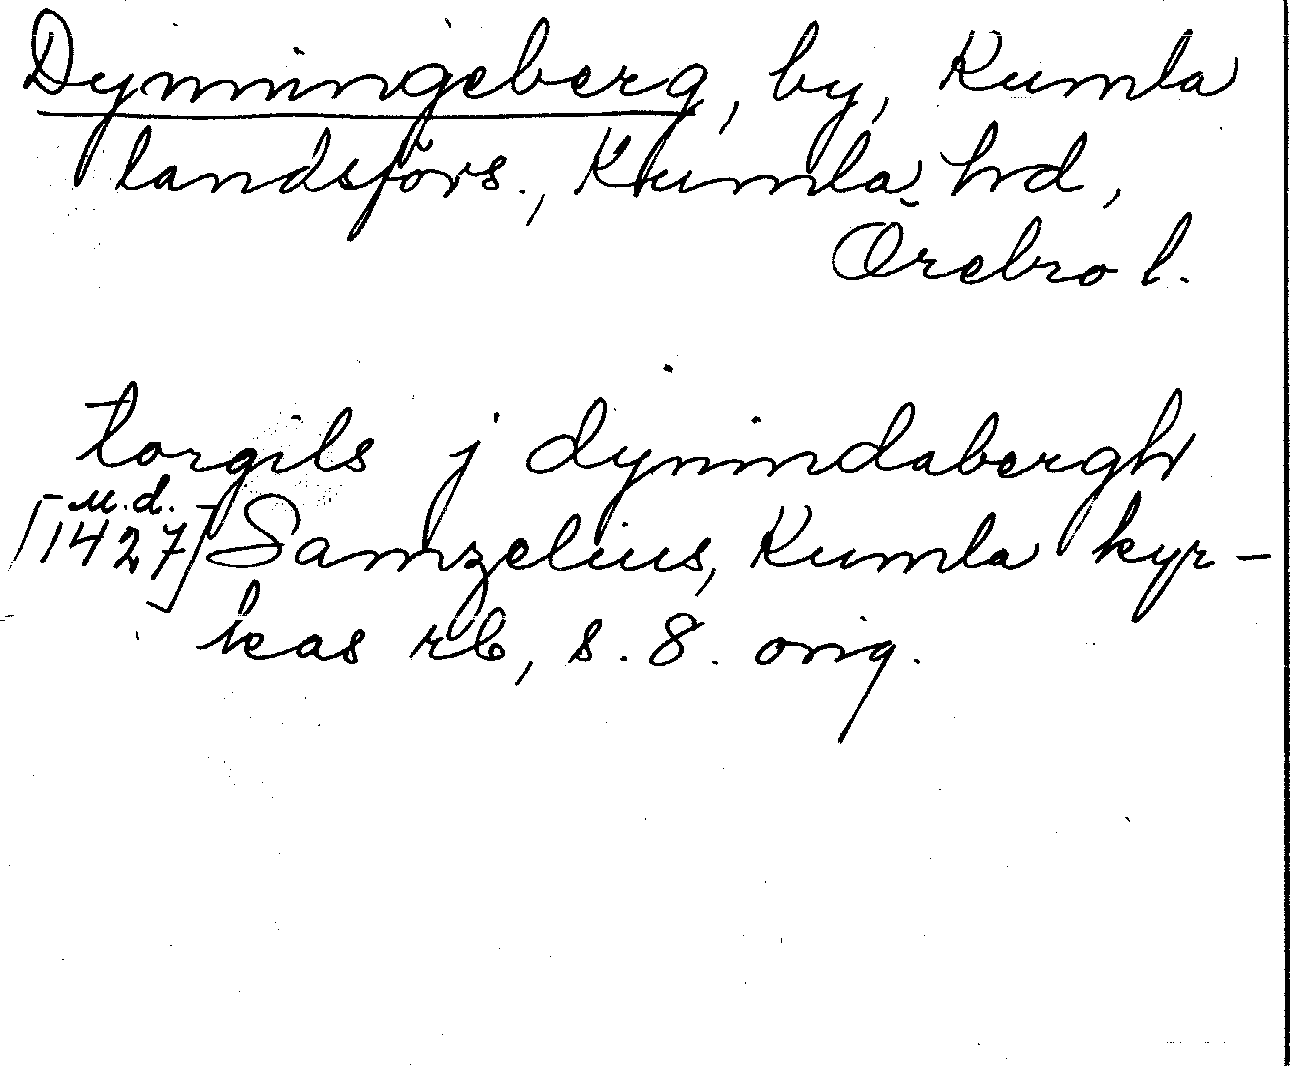 Dynningeberg, by, Kumla
landsförs., Kumla hd,
Örebro l.
torgils j dynindabergh
[u.d.
1427] Samzelius, Kumla kyr-
kas rb, s. 8. orig.